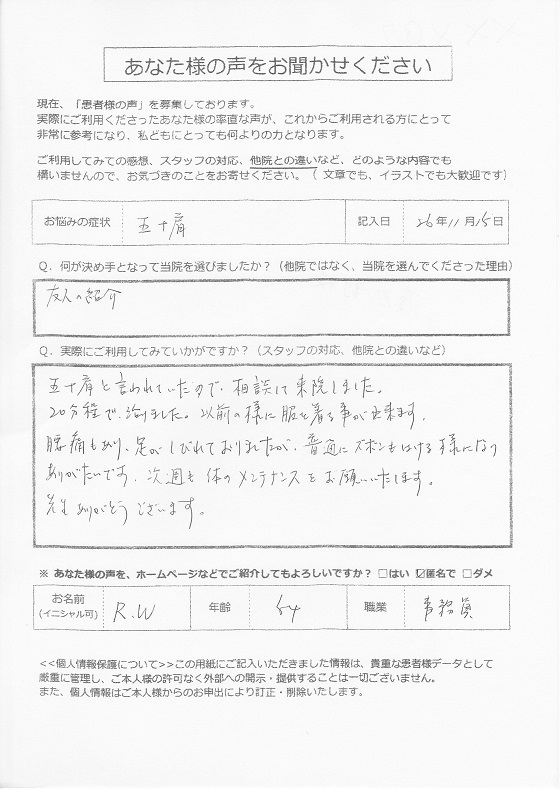 あなた様の声をお聞かせください
現在、「患者様の声」を募集しております。
実際にご利用くださったあなた様の率直な声が、これからご利用される方にとって
非常に参考になり、私どもにとっても何よりの力となります。
ご利用してみての感想、スタッフの対応、他院との違いなど、どのような内容でも
構いませんので、お気づきのことをお寄せください。（ 文章でも、イラストでも大歓迎です）
お悩みの症状 五十肩 記入日 26年11月15日
Q．何が決め手となって当院を選びましたか？（他院ではなく、当院を選んでくださった理由）
友人の紹介
Q．実際にご利用してみていかがですか？（スタッフの対応、他院との違いなど）
五十肩と言われていたので、相談して来院しました。
20分程で、治りました。以前の様に服を着る事が出来ます。
腰痛もあり、足がしびれておりましたが、普通にズボンもはける様になり
ありがたいです。次週も体のメンテナンスをお願いいたします。
先生ありがとうございます。
※ あなた様の声を、ホームページなどでご紹介してもよろしいですか？ □はい ☑匿名で □ダメ
お名前 R.W 年齢 54 職業 事務員
(イニシャル可)
<<個人情報保護について>>この用紙にご記入いただきました情報は、貴重な患者様データとして
厳重に管理し、ご本人様の許可なく外部への開示・提供することは一切ございません。
また、個人情報はご本人様からのお申出により訂正・削除いたします。